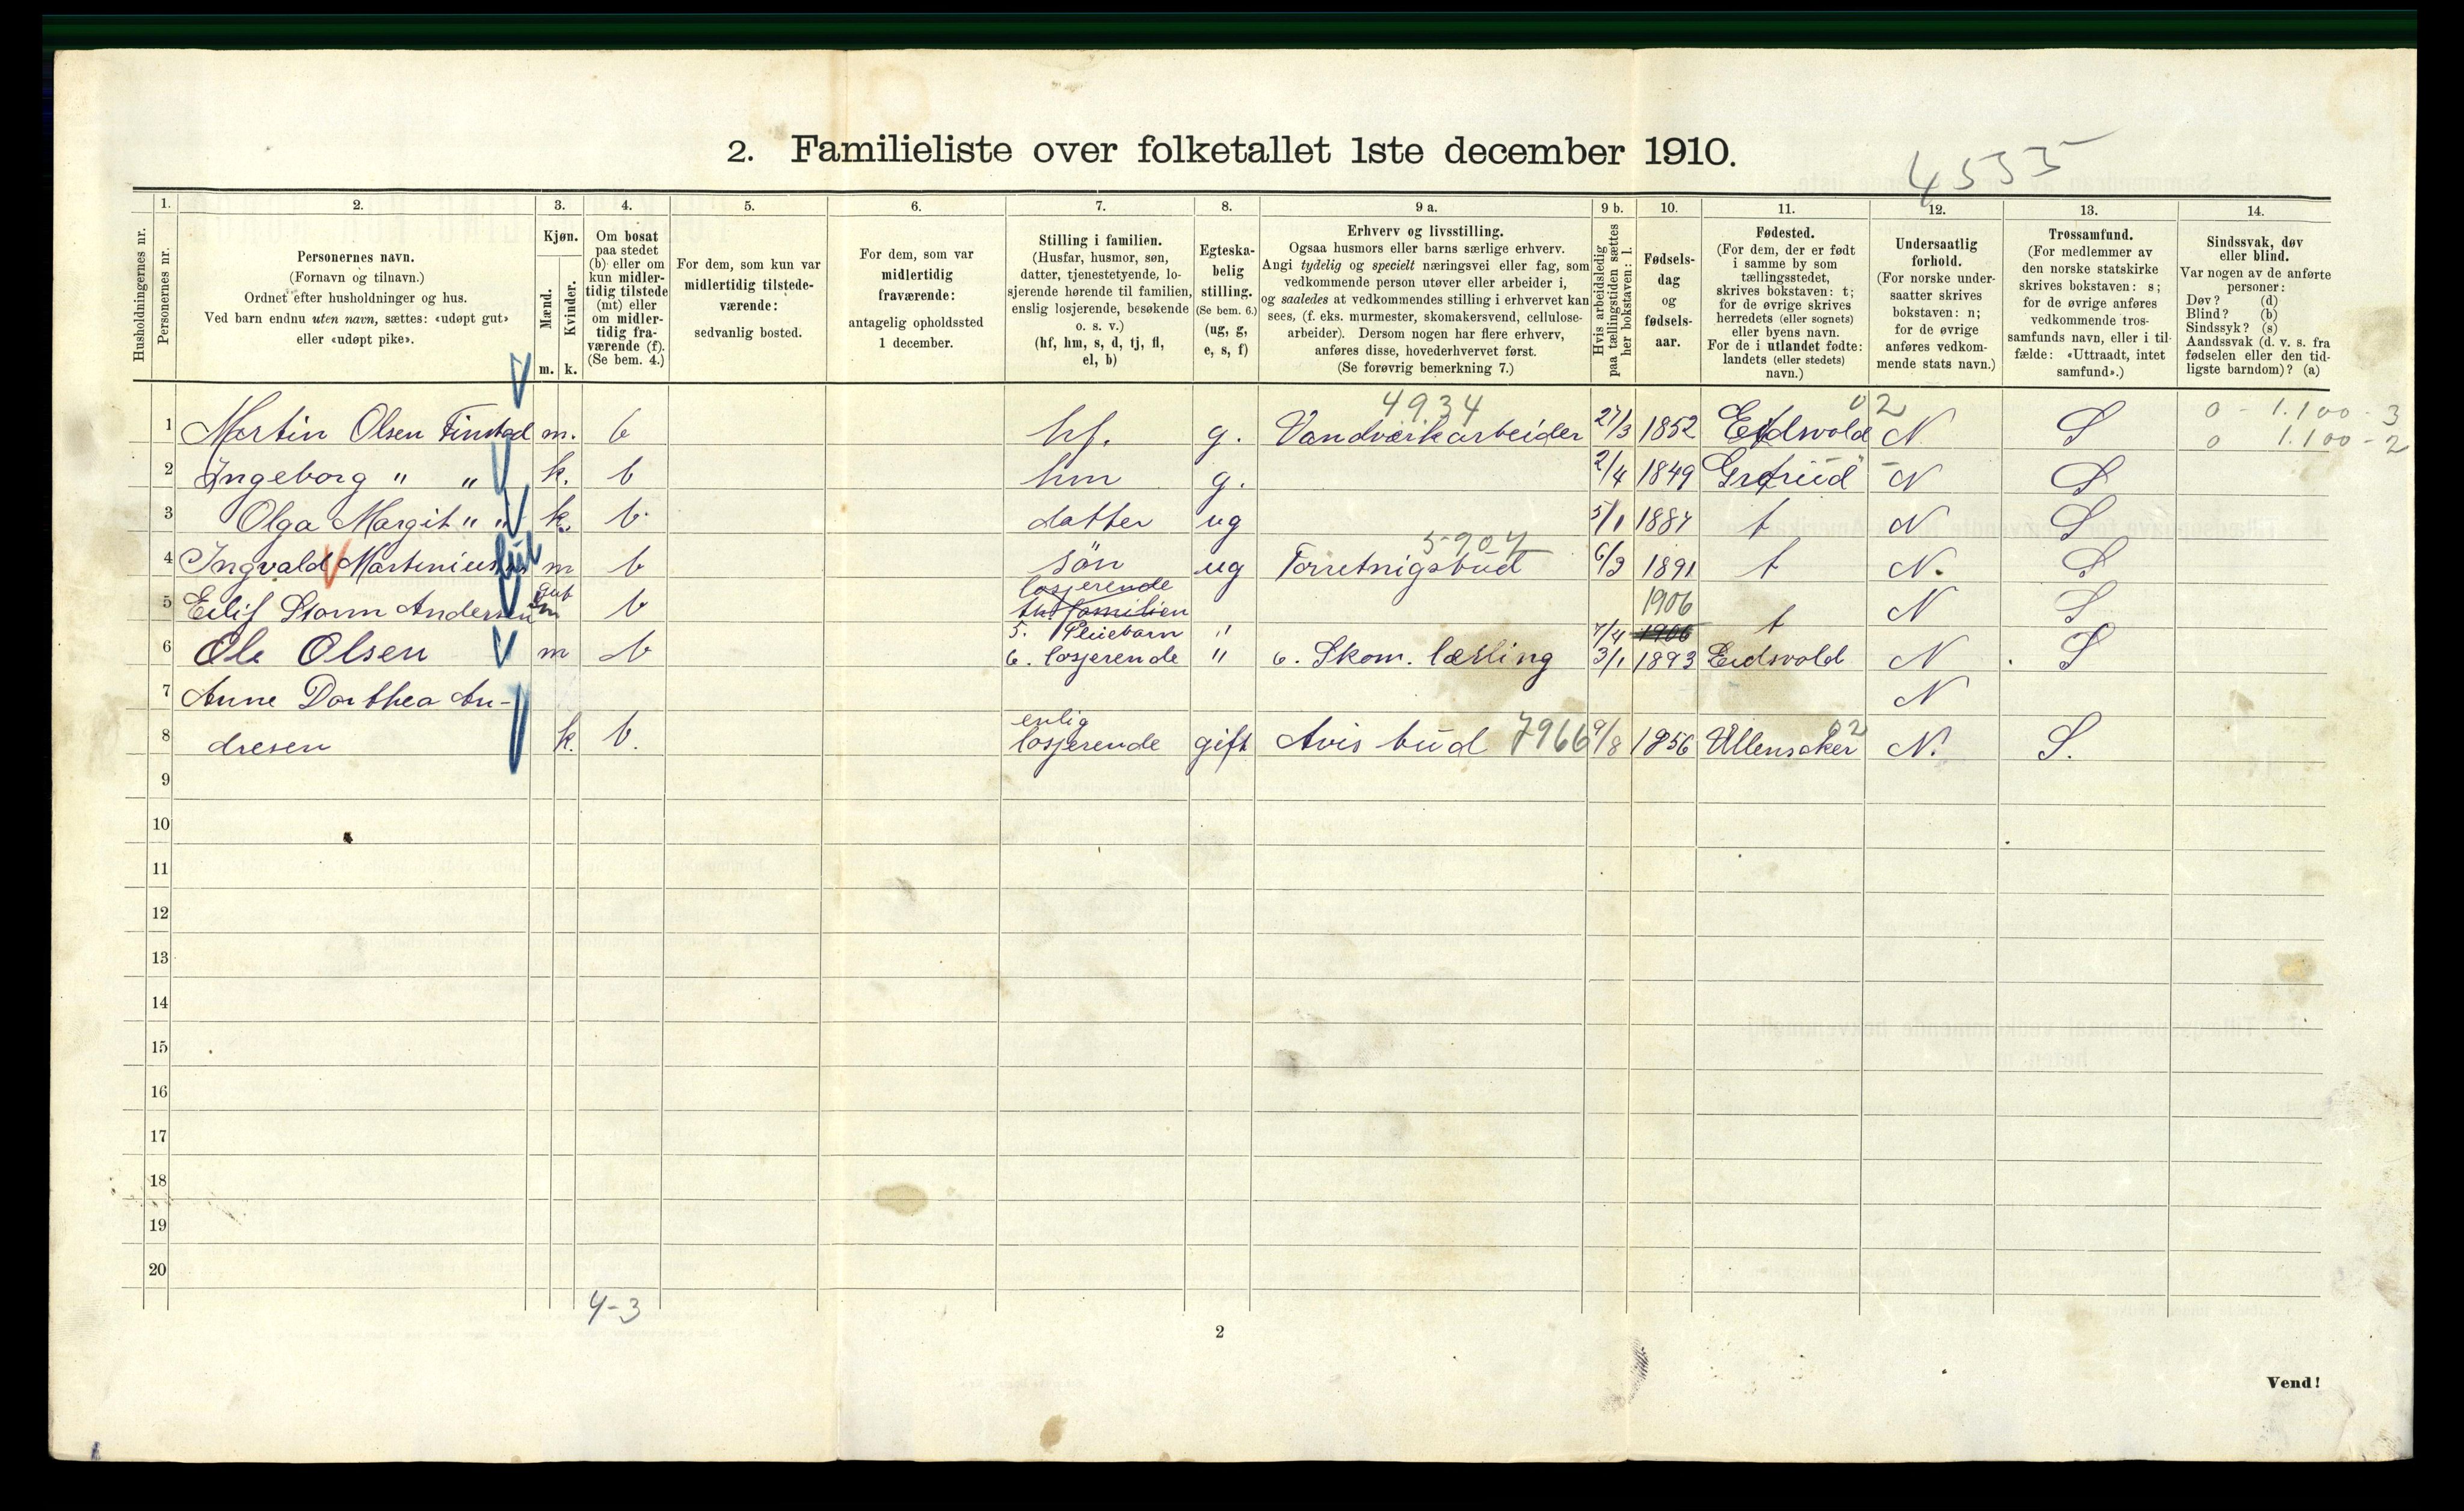 2. Familieliste over folketallet 1ste december 1910.
4535
Husholdningernes nr.
1.
Personernes nr.
2.
Personernes navn.
(Fornavn og tilnavn.)
Ordnet efter husholdninger og hus.
Ved barn endnu uten navn, sættes: «udøpt gut»
eller «udøpt pike».
3.
Kjøn.
Mænd.
Kvinder.
m. k.
4.
Om bosat
paa stedet
(b) eller om
kun midler-
tidig tilstede
(mt) eller
om midler-
tidig fra-
værende (f).
(Se bem. 4.)
5.
For dem, som kun var
midlertidig tilstede-
værende:
sedvanlig bosted.
6.
For dem, som var
midlertidig
fraværende:
antagelig opholdssted
1 december.
7.
Stilling i familien.
(Husfar, husmor, søn,
datter, tjenestetyende, lo-
sjerende hørende til familien,
enslig losjerende, besøkende
o. s. v.)
(hf, hm, s, d, tj, fl,
el, b)
8.
Egteska-
belig
stilling.
(Se bem. 6.)
(ug, g,
e, s, f)
9 a.
Erhverv og livsstilling.
Ogsaa husmors eller barns særlige erhverv.
Angi tydelig og specielt næringsvei eller fag, som
vedkommende person utøver eller arbeider i,
og saaledes at vedkommendes stilling i erhvervet kan
sees, (f. eks. murmester, skomakersvend, cellulose-
arbeider). Dersom nogen har flere erhverv,
anføres disse, hovederhvervet først.
(Se forøvrig bemerkning 7.)
9 b.
Hvis arbeidsledig
paa tællingstiden sættes
her bokstaven: l.
10.
Fødsels-
dag
og
fødsels-
aar.
11.
Fødested.
(For dem, der er født
i samme by som
tællingsstedet,
skrives bokstaven: t;
for de øvrige skrives
herredets (eller sognets)
eller byens navn.
For de i utlandet fødte:
landets (eller stedets)
navn.)
12.
Undersaatlig
forhold.
(For norske under-
saatter skrives
bokstaven: n;
for de øvrige
anføres vedkom-
mende stats navn.)
13.
Trossamfund.
(For medlemmer av
den norske statskirke
skrives bokstaven: s;
for de øvrige anføres
vedkommende tros-
samfunds navn, eller i til-
fælde: «Uttraadt, intet
samfund».)
14.
Sindssvak, døv
eller blind.
Var nogen av de anførte
personer:
Døv? (d)
Blind? (b)
Sindssyk? (s)
Aandssvak (d. v. s. fra
fødselen eller den tid-
ligste barndom)? (a)
4934 02 0 - 1.100 - 3
1 Martin Olsen Finstad m. b hf. g. Vandværkarbeider 27/3 1852 Eidsvold N S 0 1.100 - 2
2 Ingeborg " " k. b hm g. 2/4 1849 N S
3 Olga Margit " " k. b datter ug 5/1 1884 t N S
5904
4 Ingvald Martinius m b sön ug Forretnigsbud 6/3 1891 t N. S
gut losjerende
5 Eilif Storm Andersen m b familien 1906 t N S
5. Pleiebarn " 7/4 1906
6 Ole Olsen m b 6. losjerende " 6. Skom. lærling 3/1 1893 Eidsvold N S
7 Anne Dorthea An- N
enlig
8 dresen k. b. losjerende gift Avis bud 7966 9/8 1856 Ullensaker 02 N. S.
9
10
11
12
13
14
15
16
17
18
19
20
4-3
2
Vend!